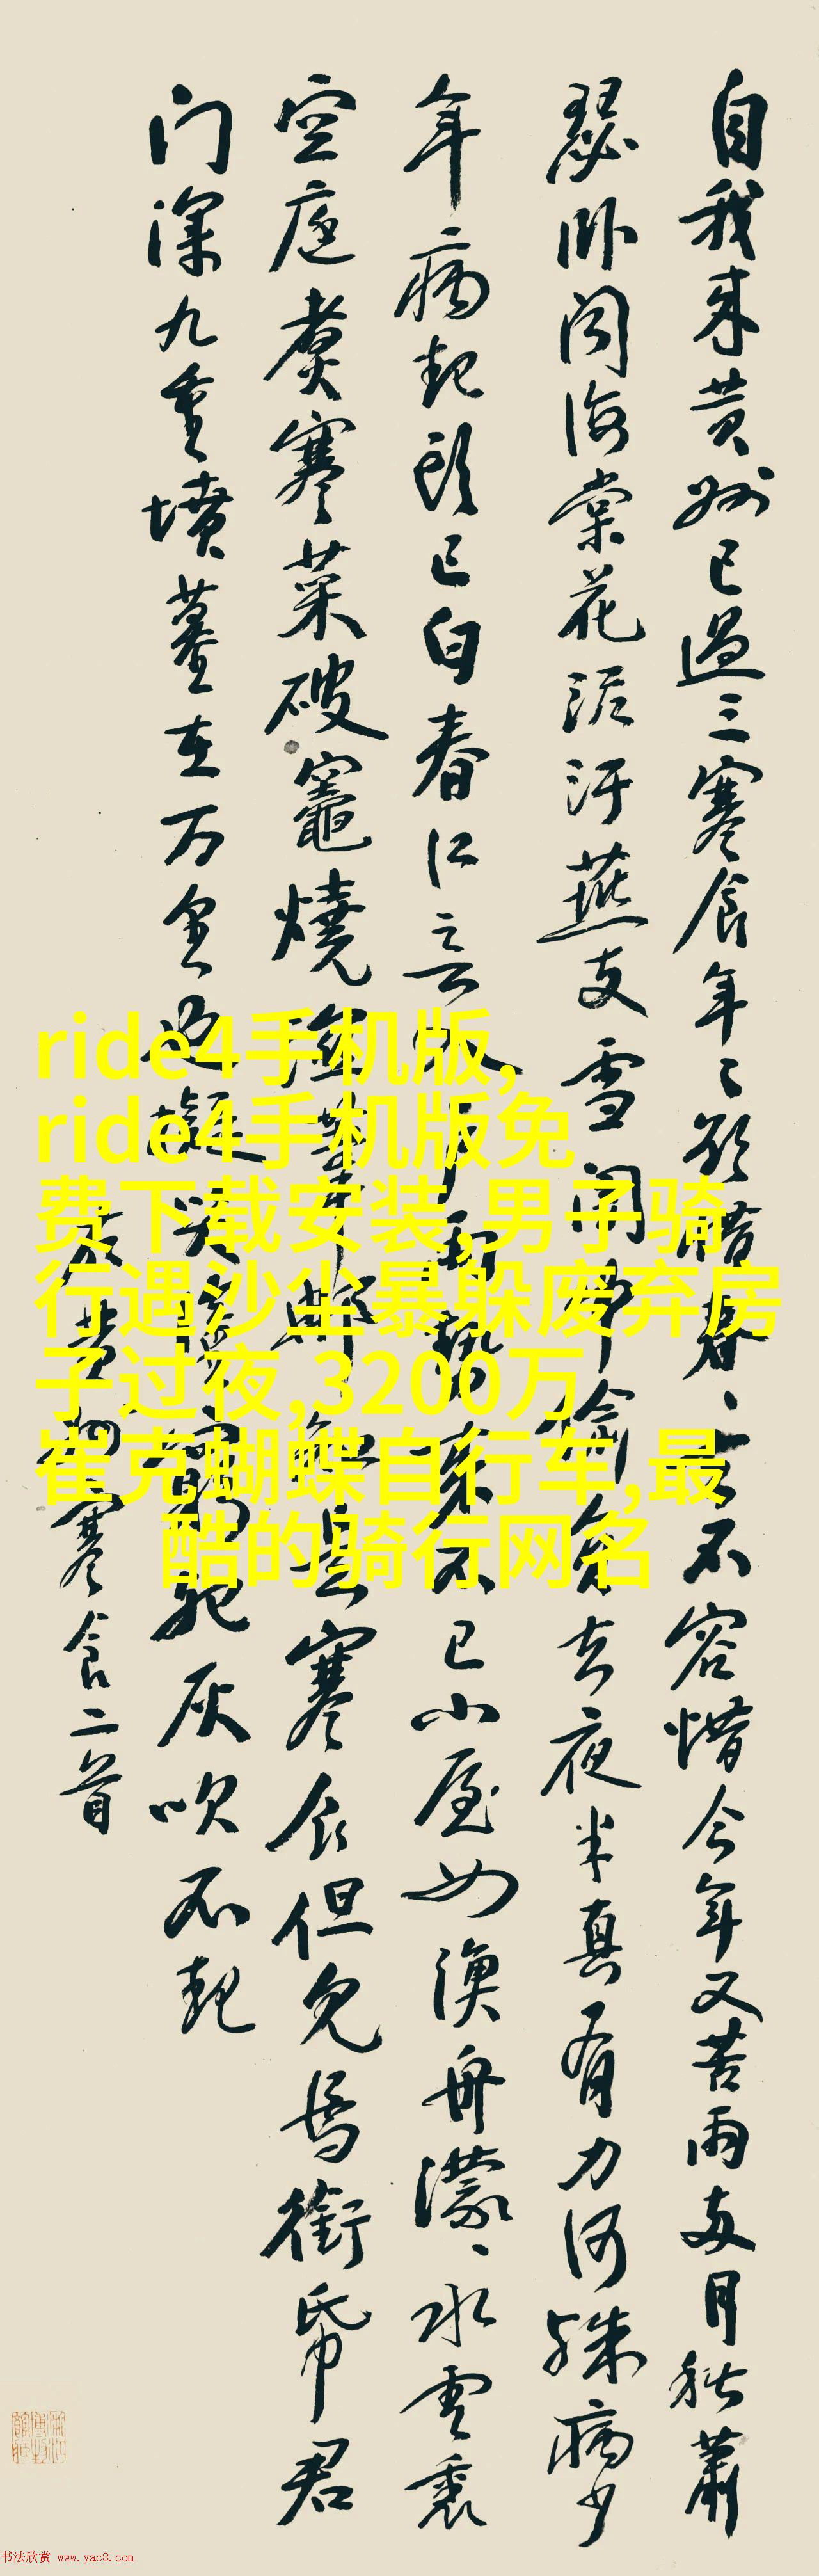 自我来黄州已過三寒食年々欲惜春春去不容惜今年又苦雨两月秋蕭
瑟卧闻海棠花泥汙燕支雪闇中偷負去夜半真有力何殊病少
年病起头已白春江欲入户雨势来不已小屋如漁舟濛々水雲裏
空庖煮寒菜破竈燒湿葦那知是寒食但见烏銜帋君
门深九重墳墓在万里也擬哭塗窮死灰吹不起
右黄州寒食二首
ride4手机版,
ride4手机版免
费下载安装,男子骑
行遇沙尘暴躲废弃房
子过夜,3200万
崔克蝴蝶自行车,最
酷的骑行网名
书法欣赏 www.yac8.com